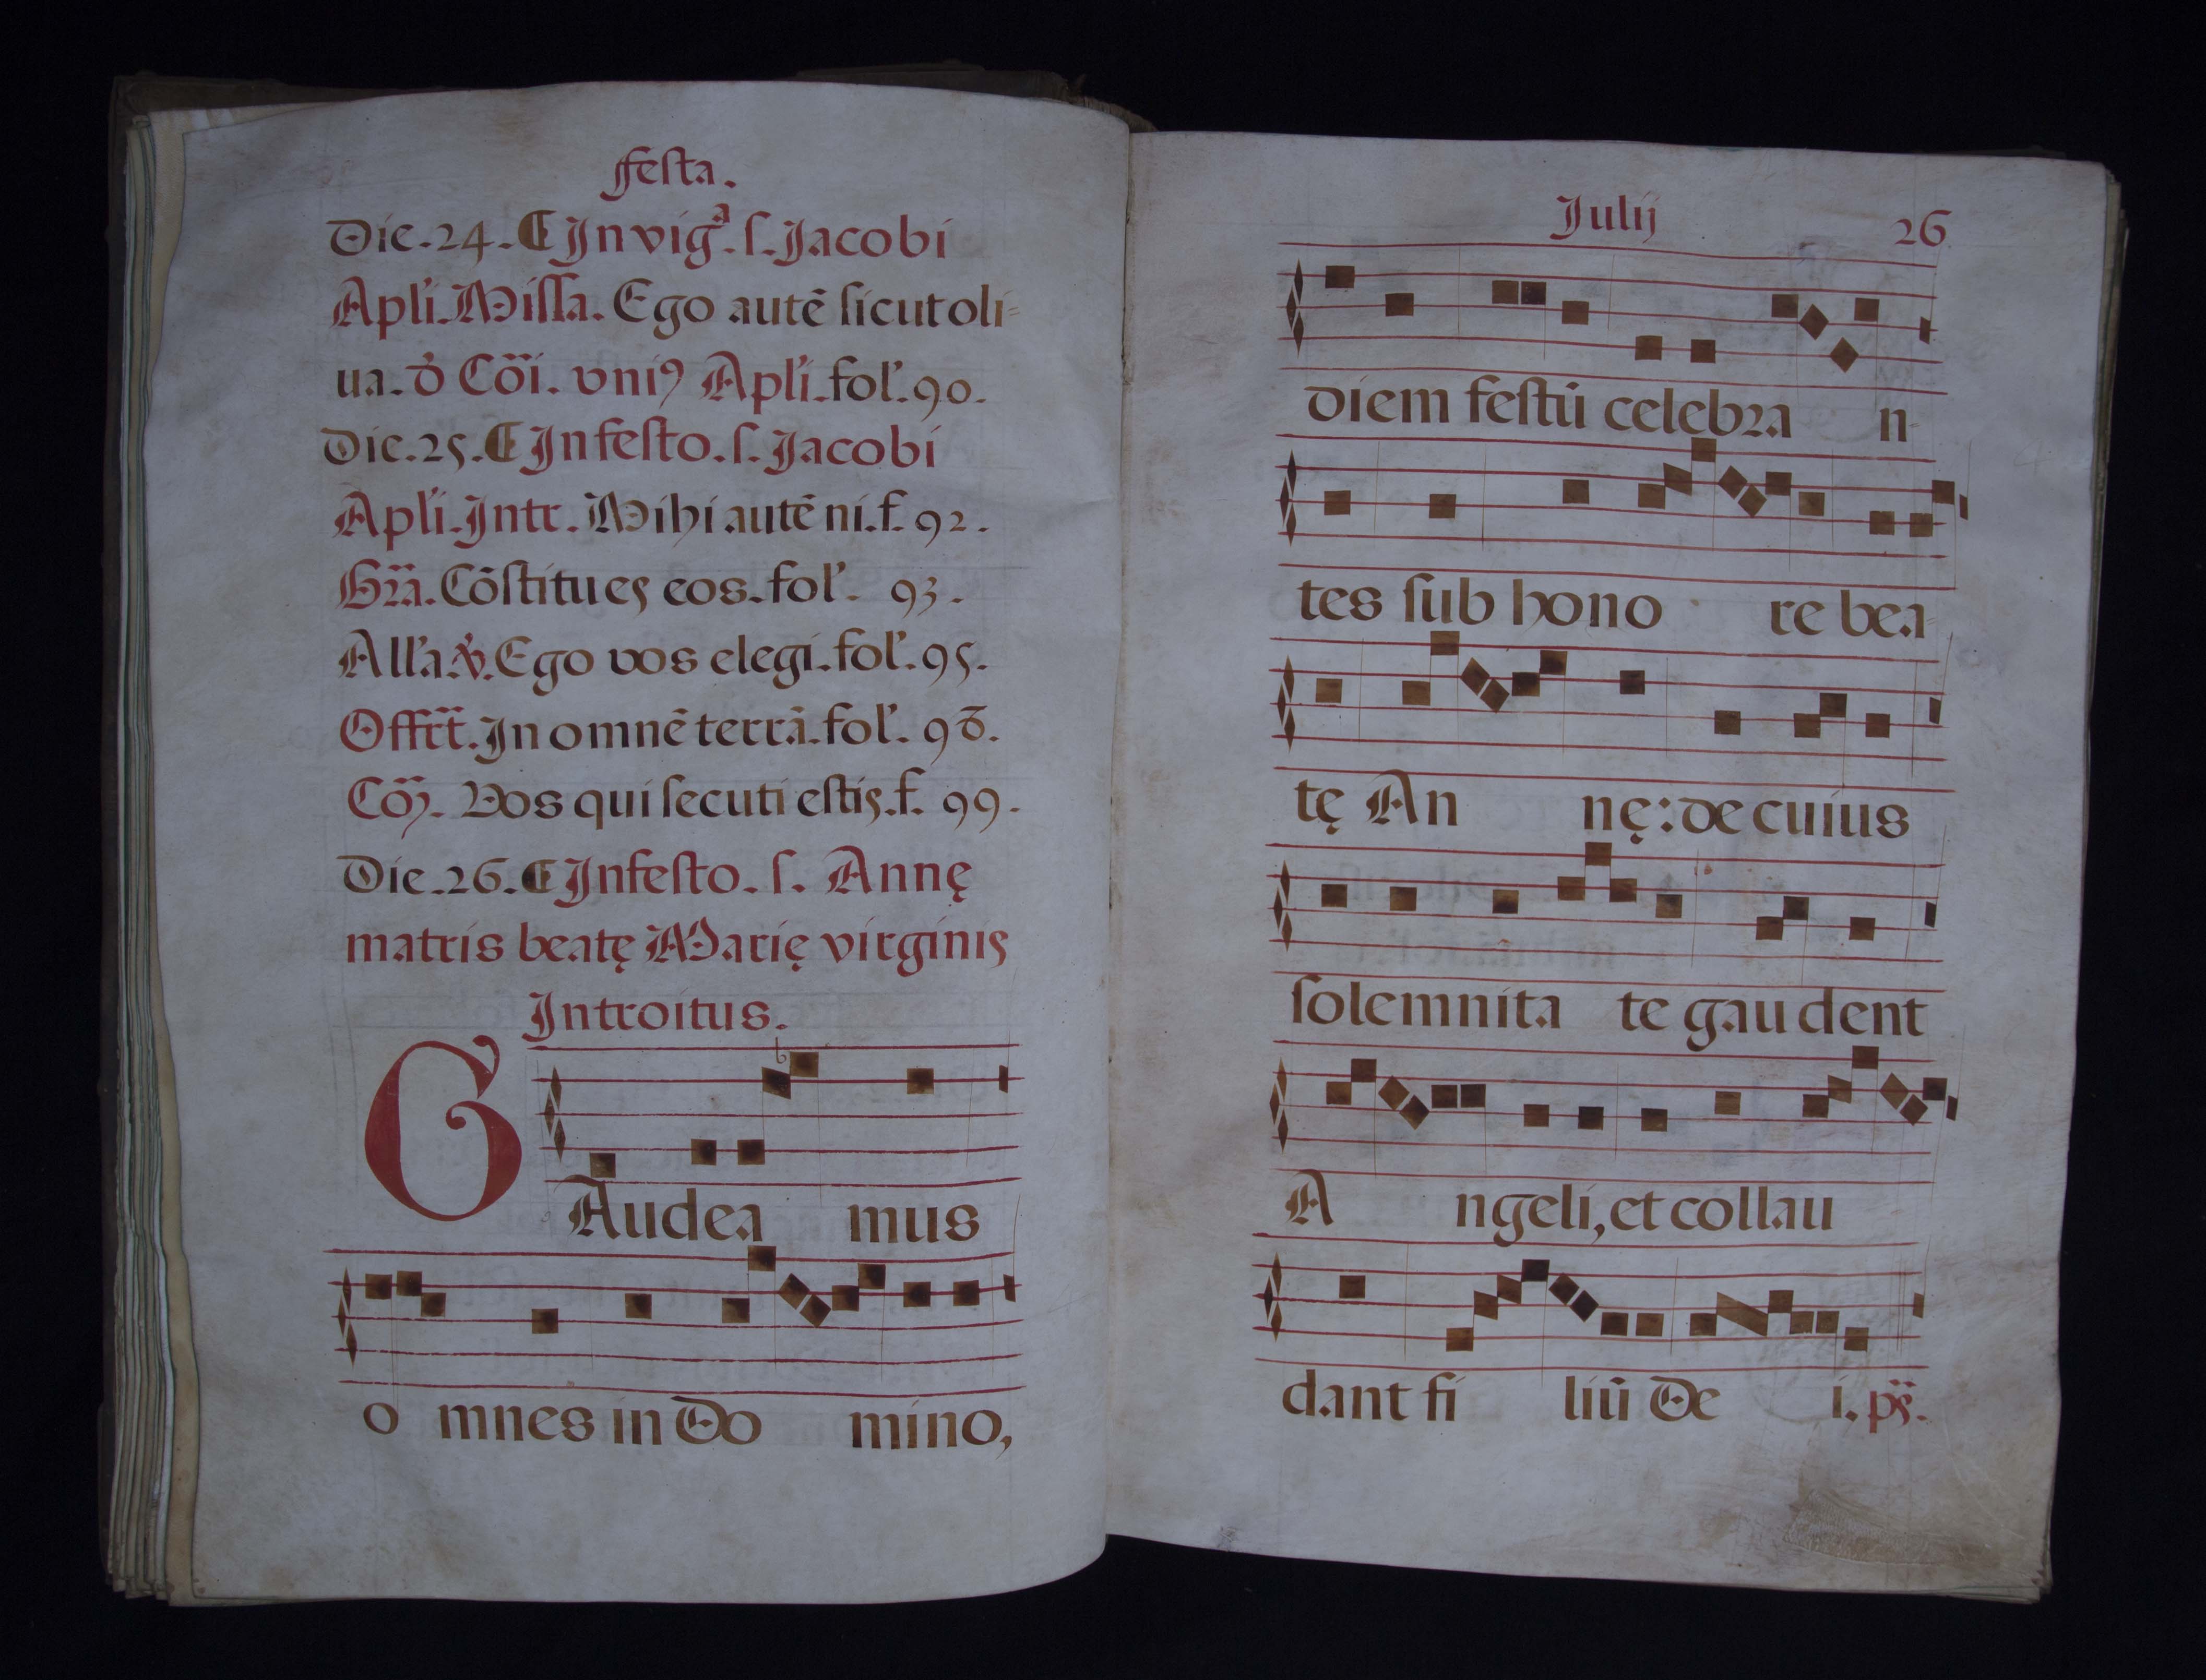 Festa.
Die.24.¶ In vigᵃ.s.Jacobi
Apľi.Missa. Ego autē sicut oli-
ua. đ Cõi. vniꝰ Apľi.foľ.90.
Die.25.¶ In festo.s.Jacobi
Apľi.Intr. Mihi autē ni.f. 92.
Gra. Cōstitues eos.foľ. 93.
Alľa.℣.Ego vos elegi.foľ.95.
Offrt. In omnē terrā.foľ. 98.
Cõ. Vos qui secuti estis.f. 99.
Die.26.¶ In festo. s. Annę
matris beatę Marię virginis
Introitus.
GAudea mus
o mnes in Do mino,
Julij 26
diem festū celebra n-
tes sub hono re bea-
tę An nę: de cuius
solemnita te gaudent
A ngeli, et collau
dant fi liū De i. ps.